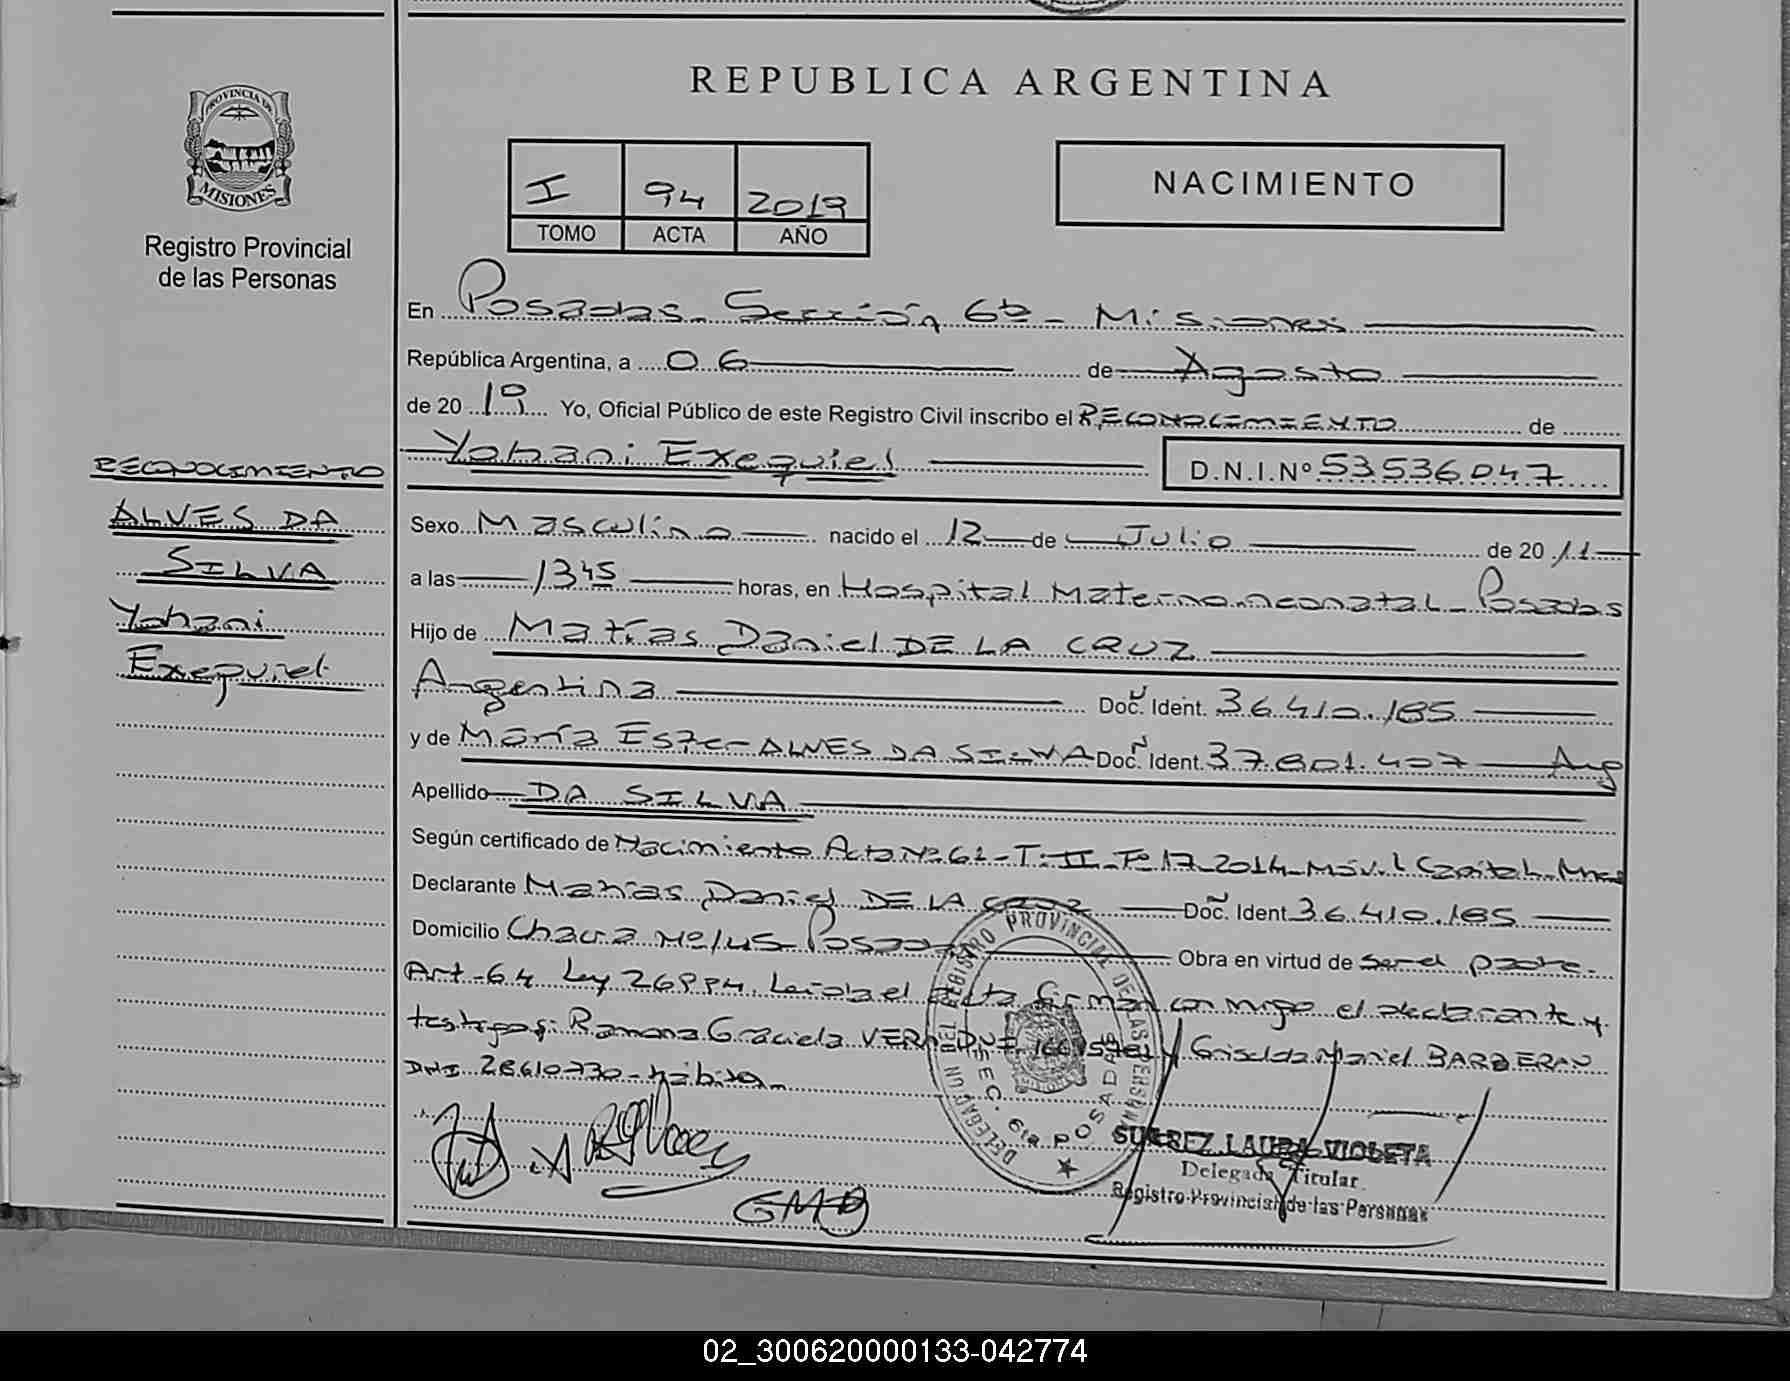 REPUBLICA ARGENTINA
PROVINCIA DE
MISIONES
Registro Provincial
de las Personas
I 94 2019
TOMO ACTA AÑO
NACIMIENTO
En Posadas Sección 6ta - Misiones
República Argentina, a 06 de Agosto
de 2019 Yo, Oficial Público de este Registro Civil inscribo el RECONOCIMIENTO de
Yohani Exequiel D.N.I.Nº 53536047
RECONOCIMIENTO
ALVES DA
SILVA
Yohani
Exequiel
Sexo Masculino nacido el 12 de Julio de 2011
a las 13 45 horas, en Hospital Materno neonatal - Posadas
Hijo de Matías Daniel DE LA CRUZ
Argentina Doc. Ident. 36.410.185
y de María Ester ALVES DA SILVA Doc. Ident. 37.801.407 Arg
Apellido DA SILVA
Según certificado de Nacimiento Acta Nº 62 - T: II - Fº 17 - 2014 - Móvil Capital - Mnes
Declarante Matías Daniel DE LA CRUZ Doc. Ident 36.410.185
Domicilio Chacra Posadas Obra en virtud de ser el padre.
Art. 64 Ley 26994. Leída el acta firman conmigo el declarante y
testigos: Ramona Graciela VERA DNI y Griselda Mariel BARBERAN
DNI 28610730
GMB
DELEGACION DEL REGISTRO PROVINCIAL DE LAS PERSONAS
SEC. 6ta POSADAS
SUAREZ LAURA VIOLETA
Delegada Titular
Registro Provincial de las Personas
02_300620000133-042774